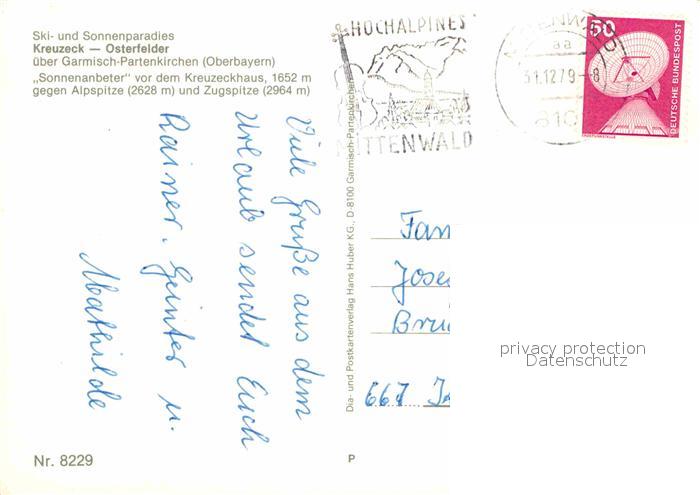 Ski- und Sonnenparadies
Kreuzeck — Osterfelder
über Garmisch-Partenkirchen (Oberbayern)
„Sonnenanbeter" vor dem Kreuzeckhaus, 1652 m
gegen Alpspitze (2628 m) und Zugspitze (2964 m)
Viele Grüße aus dem
Urlaub sendet Euch
Rainer. Günter u.
Mathilde
Nr. 8229
Dia- und Postkartenverlag Hans Huber KG., D-8100 Garmisch-Partenkirchen
P
HOCHALPINES
MITTENWALD
aa
31.12.79-8
810
50
DEUTSCHE BUNDESPOST
Fam
Jose
Bru
667
privacy protection
Datenschutz